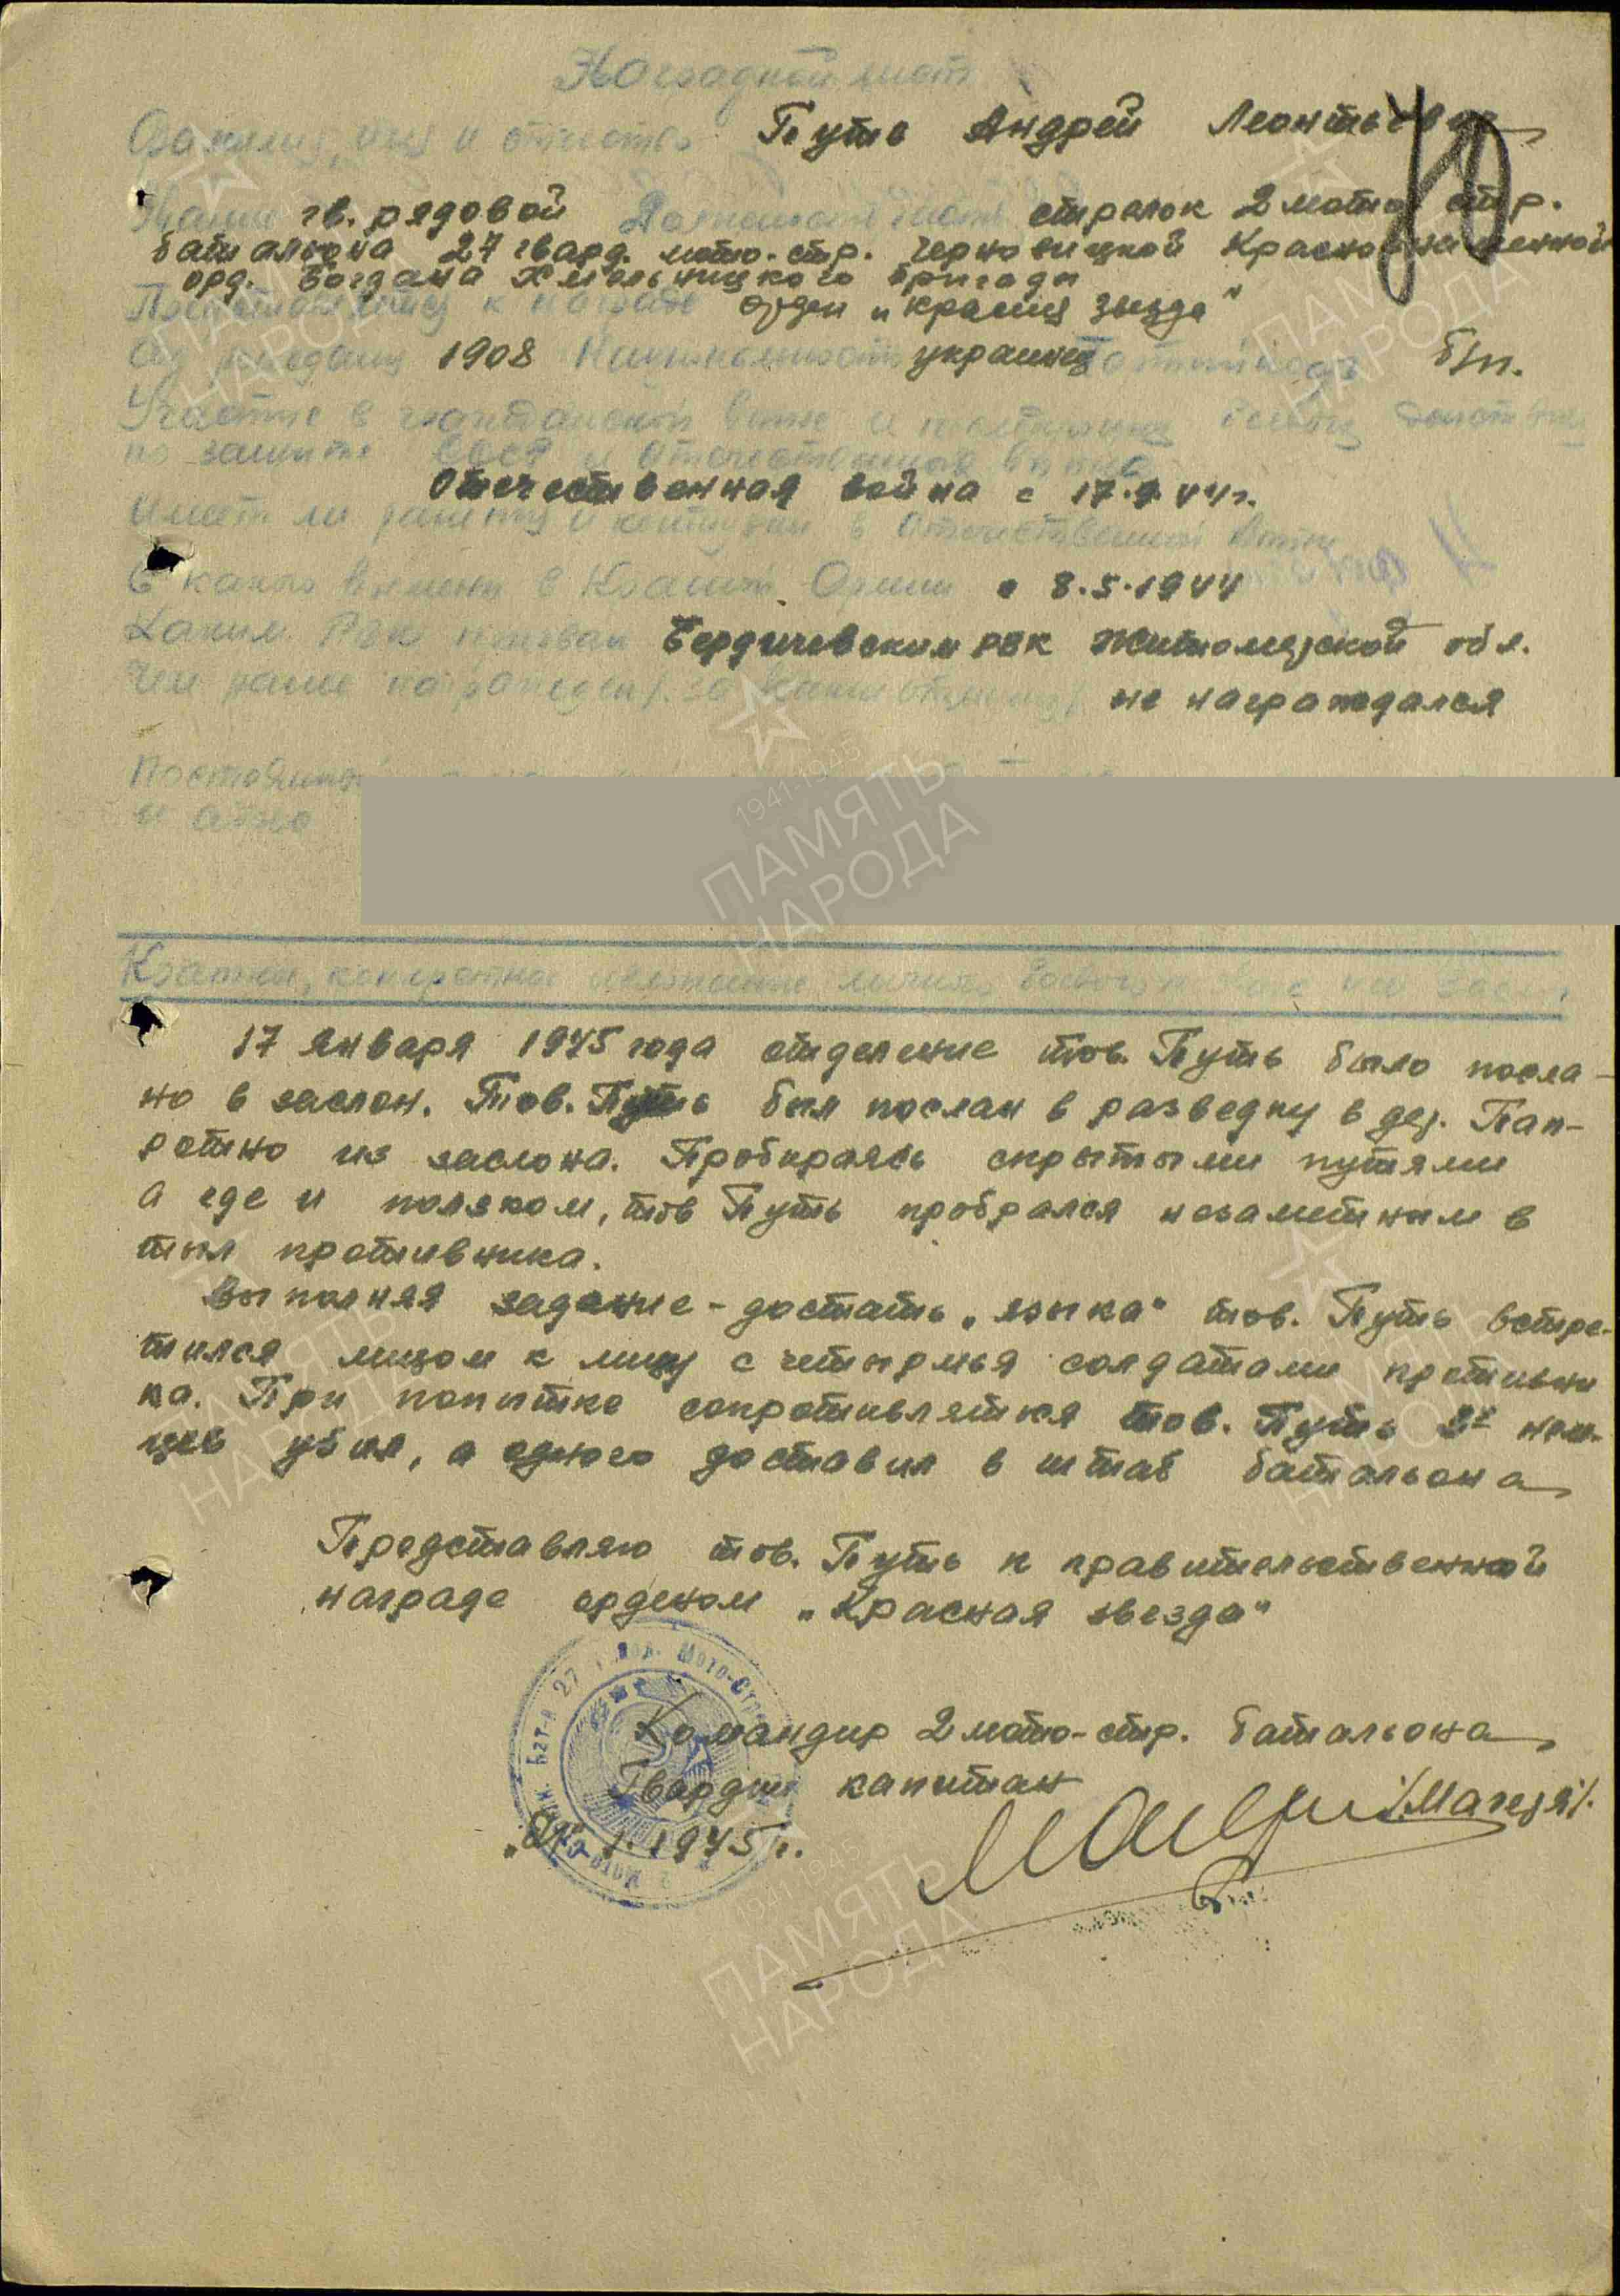 Наградной лист
Фамилия, имя и отчество Путь Андрей Леонтьевич
Звание гв. рядовой Должность часть стрелок 2 мото стр.
батальона 27 гвард. мото-стр. Черновицкой Краснознаменной
орд. Богдана Хмельницкого бригады
Представляется к награде орден „Красная звезда“
Год рождения 1908 Национальность украинец Партийность б/п.
Участие в гражданской войне и последующих боевых действиях
по защите СССР и отечественной войне
Отечественная война с 17.9.44г.
Имеет ли ранения и контузии в отечественной войне
С какого времени в Красной Армии с 8.5.1944
Каким РВК призван Бердичевским РВК Житомирской обл.
Чем ранее награжден (за какие отличия) не награждался
Постоянный
и адрес
Краткое, конкретное изложение личного боевого
17 января 1945 года отделение тов. Путь было посла-
но в заслон. Тов. Путь был послан в разведку в дер. Пап-
ротно из заслона. Пробираясь скрытыми путями
а где и ползком, тов Путь пробрался незаметным в
тыл противника.
Выполняя задание - достать „языка“ тов. Путь встре-
тился лицом к лицу с четырмья солдатами противни
ка. При попытке сопротивляться тов. Путь 2х нем-
цев убил, а одного доставил в штаб батальона
Представляю тов. Путь к правительственной
награде орденом „Красная звезда“
Командир 2 мото-стр. батальона
Гвардии капитан /Магеря/.
1.1945 г.
ПАМЯТЬ
НАРОДА
1941-1945